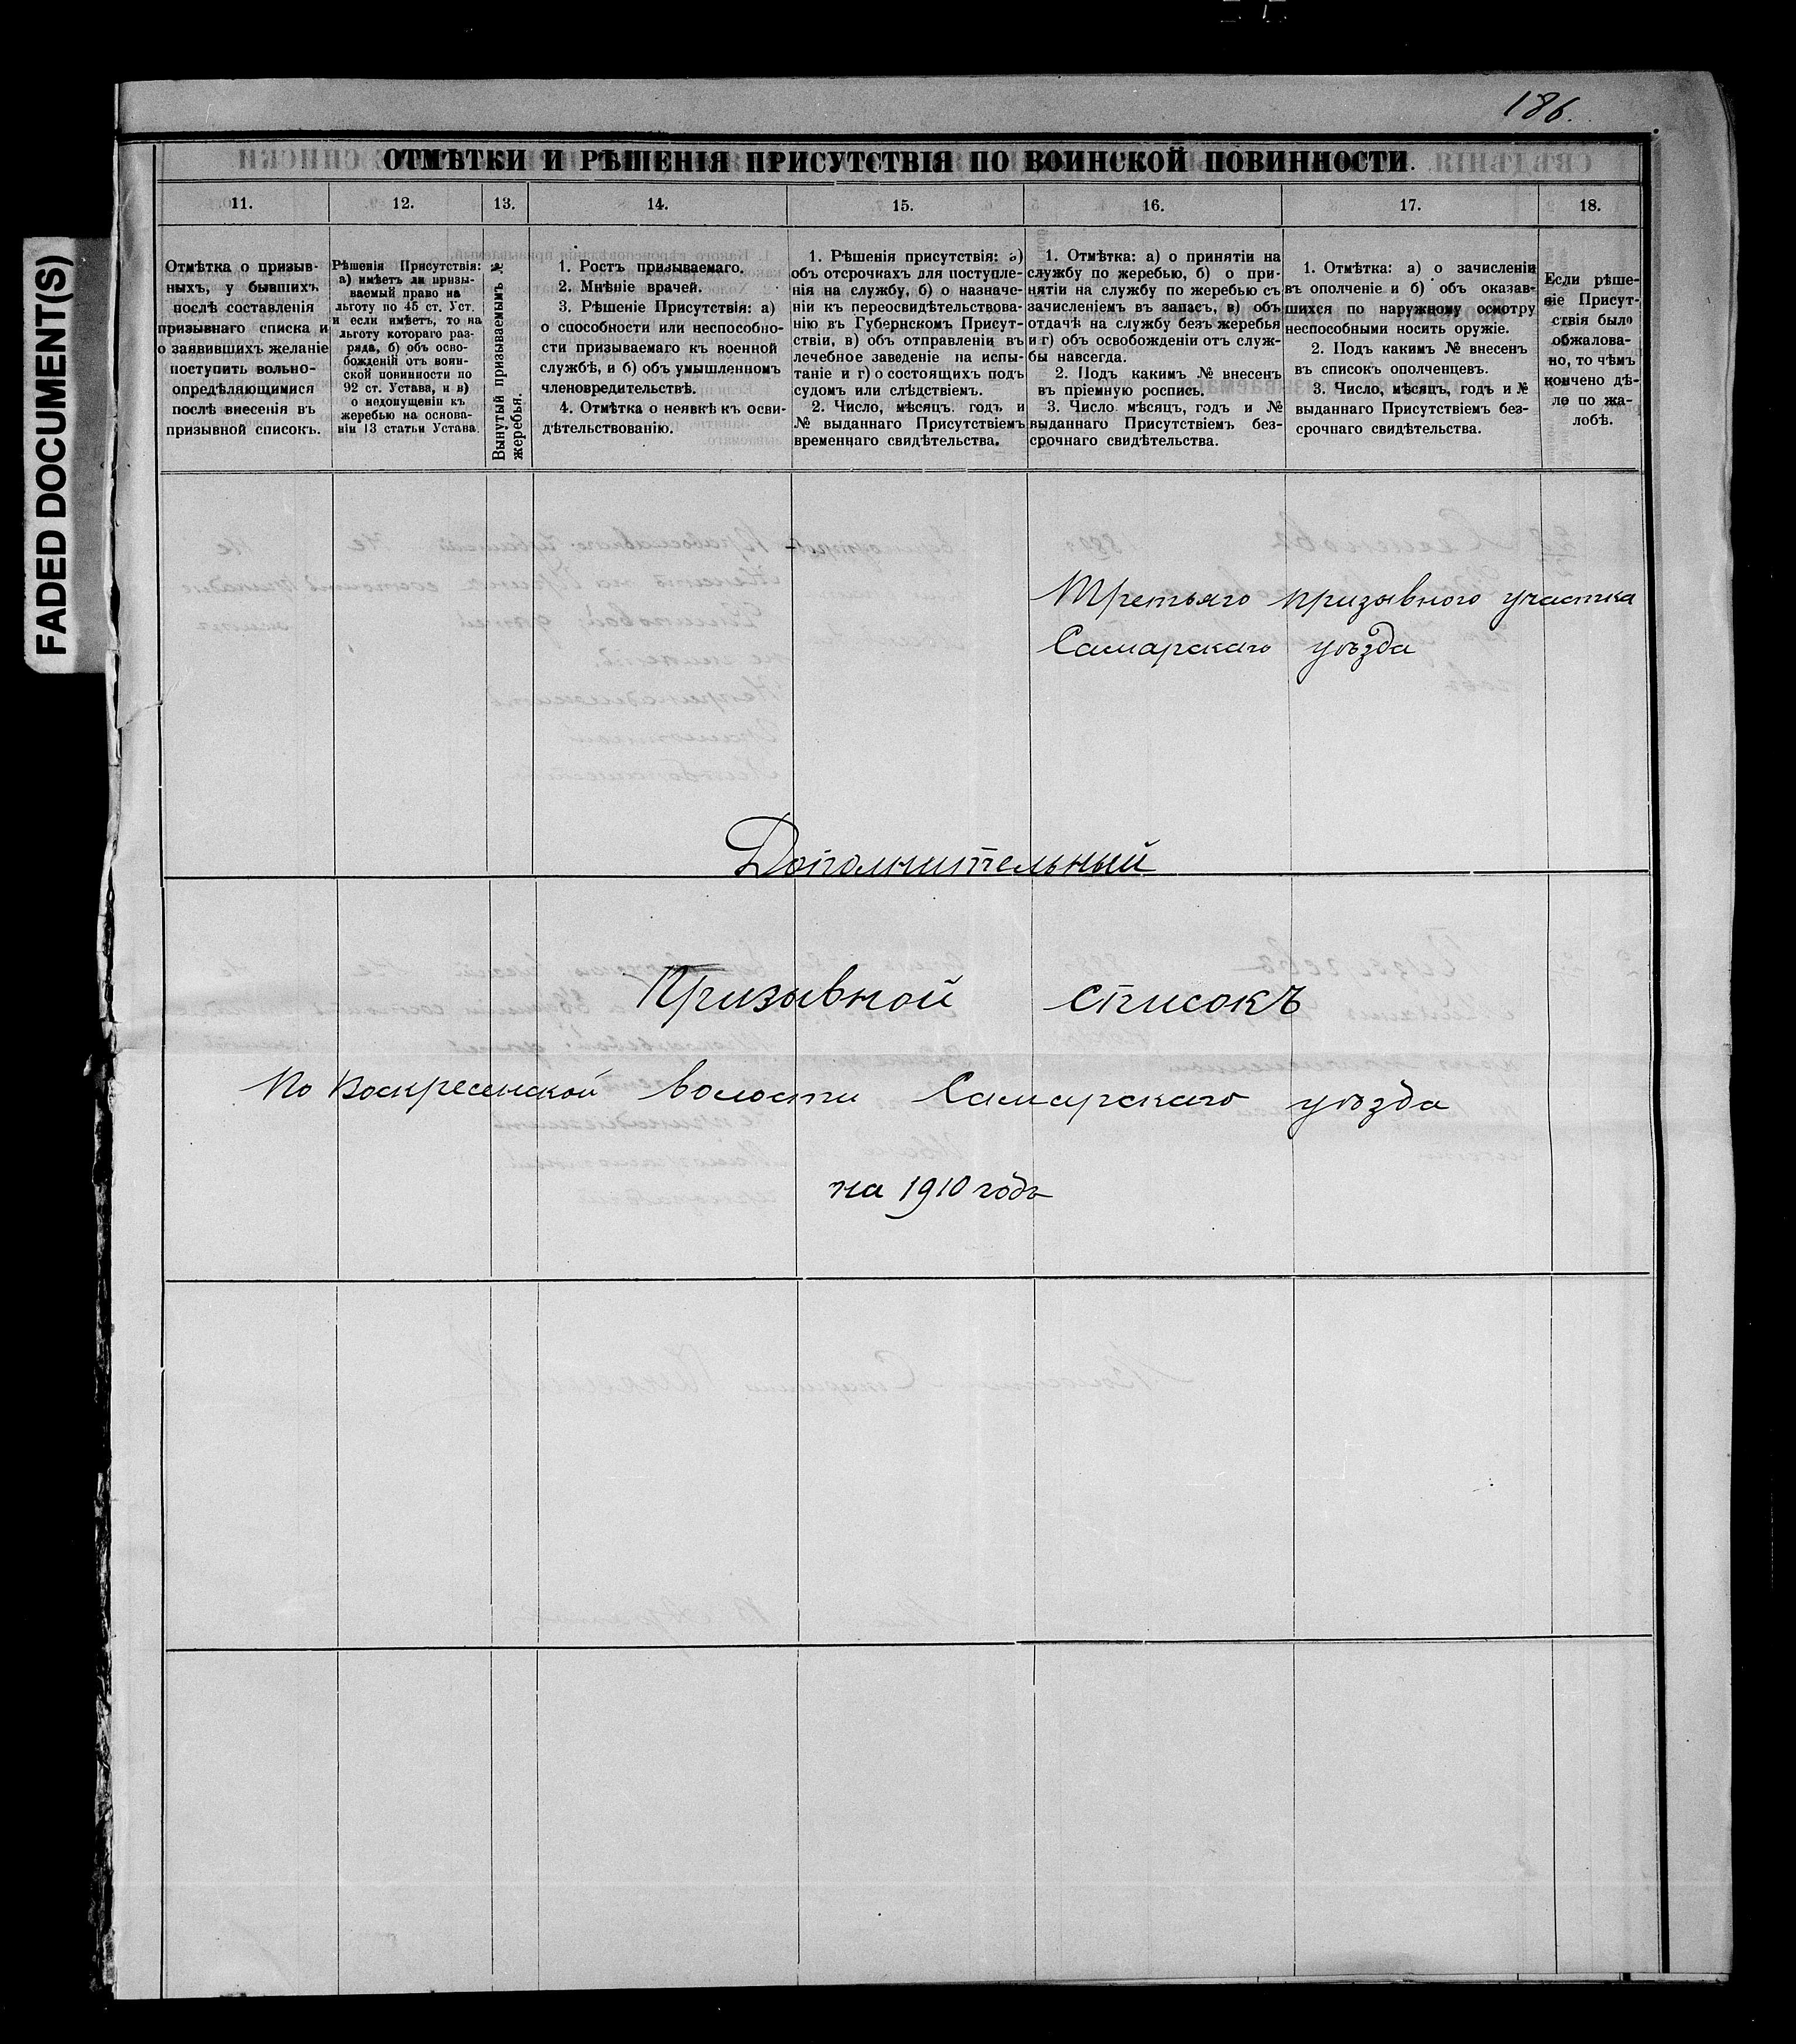 186.
FADED DOCUMENT(S)
ОТМѢТКИ И РѢШЕНІЯ ПРИСУТСТВІЯ ПО ВОИНСКОЙ ПОВИННОСТИ.
11.
12.
13.
14.
15.
16.
17.
18.
Отмѣтка о призыв-
ныхъ, у бывшихъ
послѣ составленія
призывнаго списка и
о заявившихъ желаніе
поступить вольно-
опредѣляющимися
послѣ внесенія въ
призывной списокъ.
Рѣшенія Присутствія:
а) имѣетъ ли призы-
ваемый право на
льготу по 45 ст. Уст.
и если имѣетъ, то на
льготу котораго раз-
ряда, б) объ осво-
божденій отъ воин-
ской повинности по
92 ст. Устава, и в)
о недопущеніи къ
жеребью на основа-
ніи 13 статьи Устава.
Вынутый призываемымъ №
жеребья.
1. Ростъ призываемаго.
2. Мнѣніе врачей.
3. Рѣшеніе Присутствія: а)
о способности или неспособно-
сти призываемаго къ военной
службѣ, и б) объ умышленномъ
членовредительствѣ.
4. Отмѣтка о неявкѣ къ осви-
дѣтельствованію.
1. Рѣшенія присутствія: а)
объ отсрочкахъ для поступле-
нія на службу, б) о назначе-
ніи къ переосвидѣтельствова-
нію въ Губернскомъ Присут-
ствіи, в) объ отправленіи въ
лечебное заведеніе на испы-
таніе и г) о состоящихъ подъ
судомъ или слѣдствіемъ.
2. Число, мѣсяцъ. годъ и
№ выданнаго Присутствіемъ
временнаго свидѣтельства.
1. Отмѣтка: а) о принятіи на
службу по жеребью, б) о при-
нятіи на службу по жеребью съ
зачисленіемъ въ запасъ, в) объ
отдачѣ на службу безъ жеребья
и г) объ освобожденіи отъ служ-
бы навсегда.
2. Подъ какимъ № внесенъ
въ пріемную роспись.
3. Число мѣсяцъ, годъ и №
выданнаго Присутствіемъ без-
срочнаго свидѣтельства.
1. Отмѣтка: а) о зачисленіи
въ ополченіе и б) объ оказав-
шихся по наружному осмотру
неспособными носить оружіе.
2. Подъ какимъ № внесенъ
въ списокъ ополченцевъ.
3. Число, мѣсяцъ, годъ и №
выданнаго Присутствіемъ без-
срочнаго свидѣтельства.
Если рѣше-
ніе Присут-
ствія было
обжалова-
но, то чѣмъ
кончено дѣ-
ло по жа-
лобѣ.
Третьяго призывного участка
Самарскаго уѣзда
Дополнительный
Призывной списокъ
По Воскресенской волости Самарскаго уѣзда
на 1910 годъ